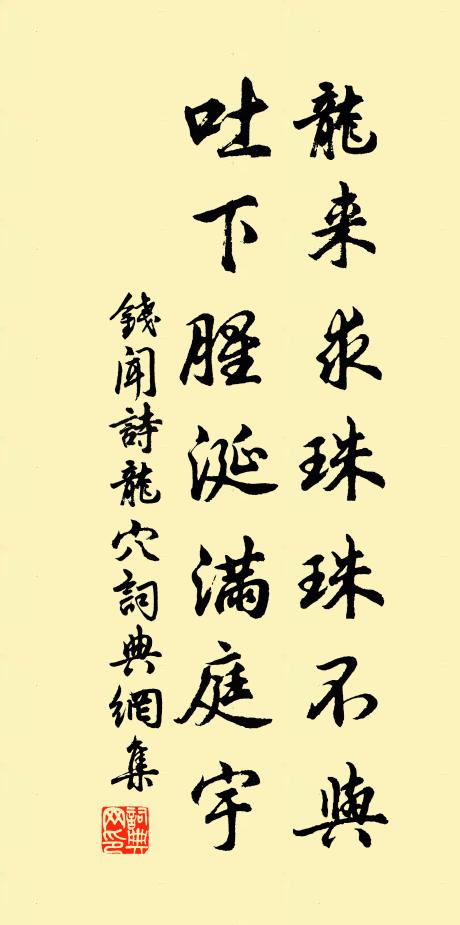 龍来求珠珠不與
吐下腥涎滿庭宇
錢聞詩龍穴詞典網集
詞典網印